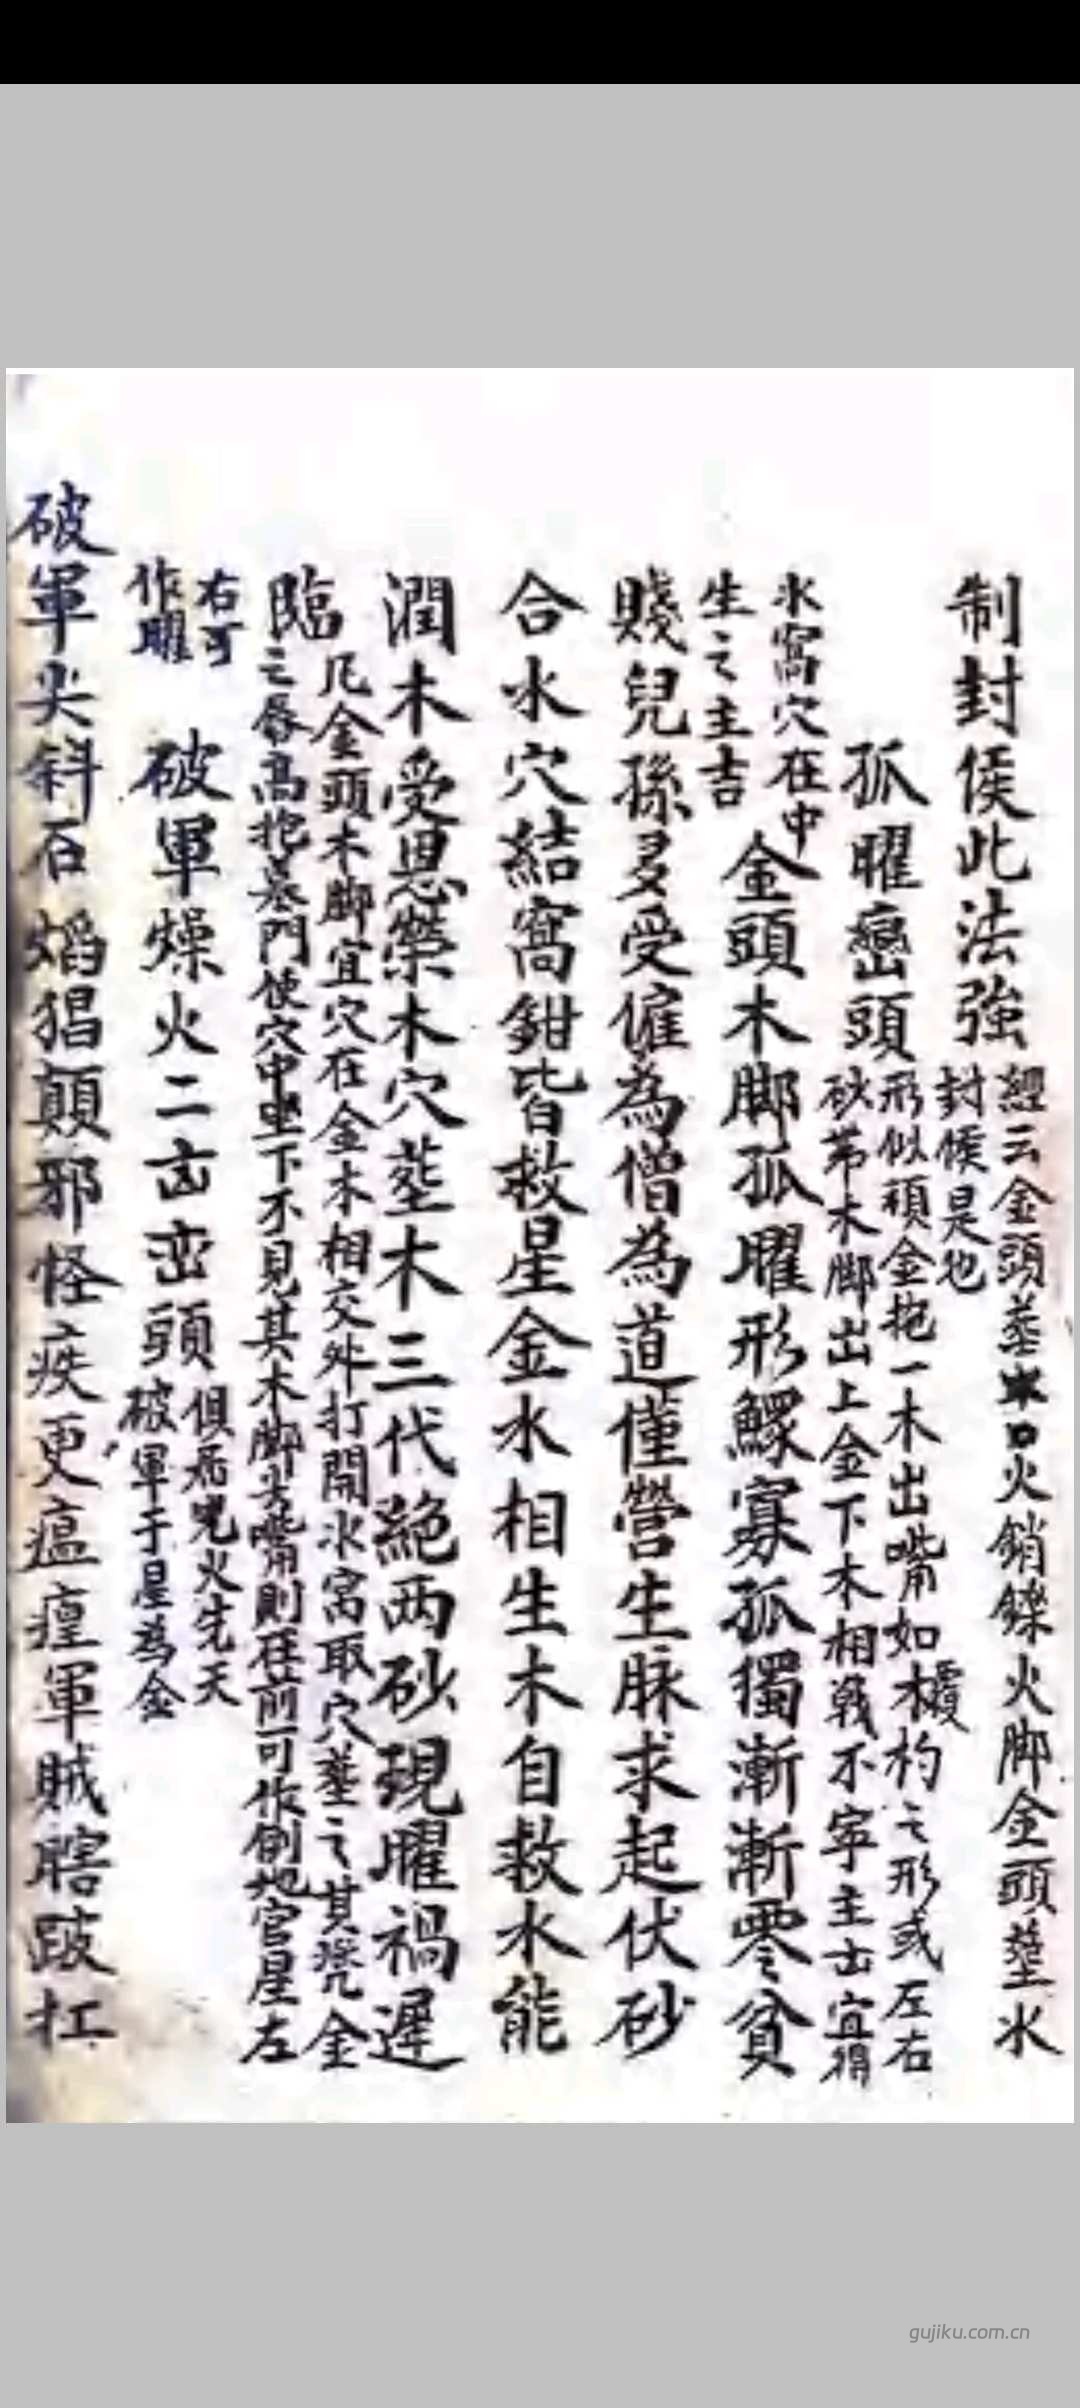 制封侯此法強
經云金頭葬水口火銷鑠火脚金頭塟水
封侯是也
孤曜巒頭
形似頑金拖一木出嘴如木杓之形或左右
砂帶木脚出上金下木相戰不寧主出宜得
水窩穴在中
生之主吉
金頭木脚孤曜形鰥寡孤獨漸漸零貧
賤兒孫多受僱為僧為道僅營生脉求起伏砂
合水穴結窩鉗皆救星金水相生木自救水能
潤木受恩榮木穴塟木三代絕两砂現曜禍遲
臨
凡金頭木脚宜穴在金木相交处打開水窩取穴塟之其塋金
之唇高抱墓門使穴中坐下不見其木脚尖嘴則在前可作倒地官星左
右可
作曜
破軍燥火二凶巒頭
俱屬兇火先天
破軍于星為金
破軍尖斜石焰猖顛邪怪疾更瘟瘴軍賊瞎跛扛
gujiku.com.cn